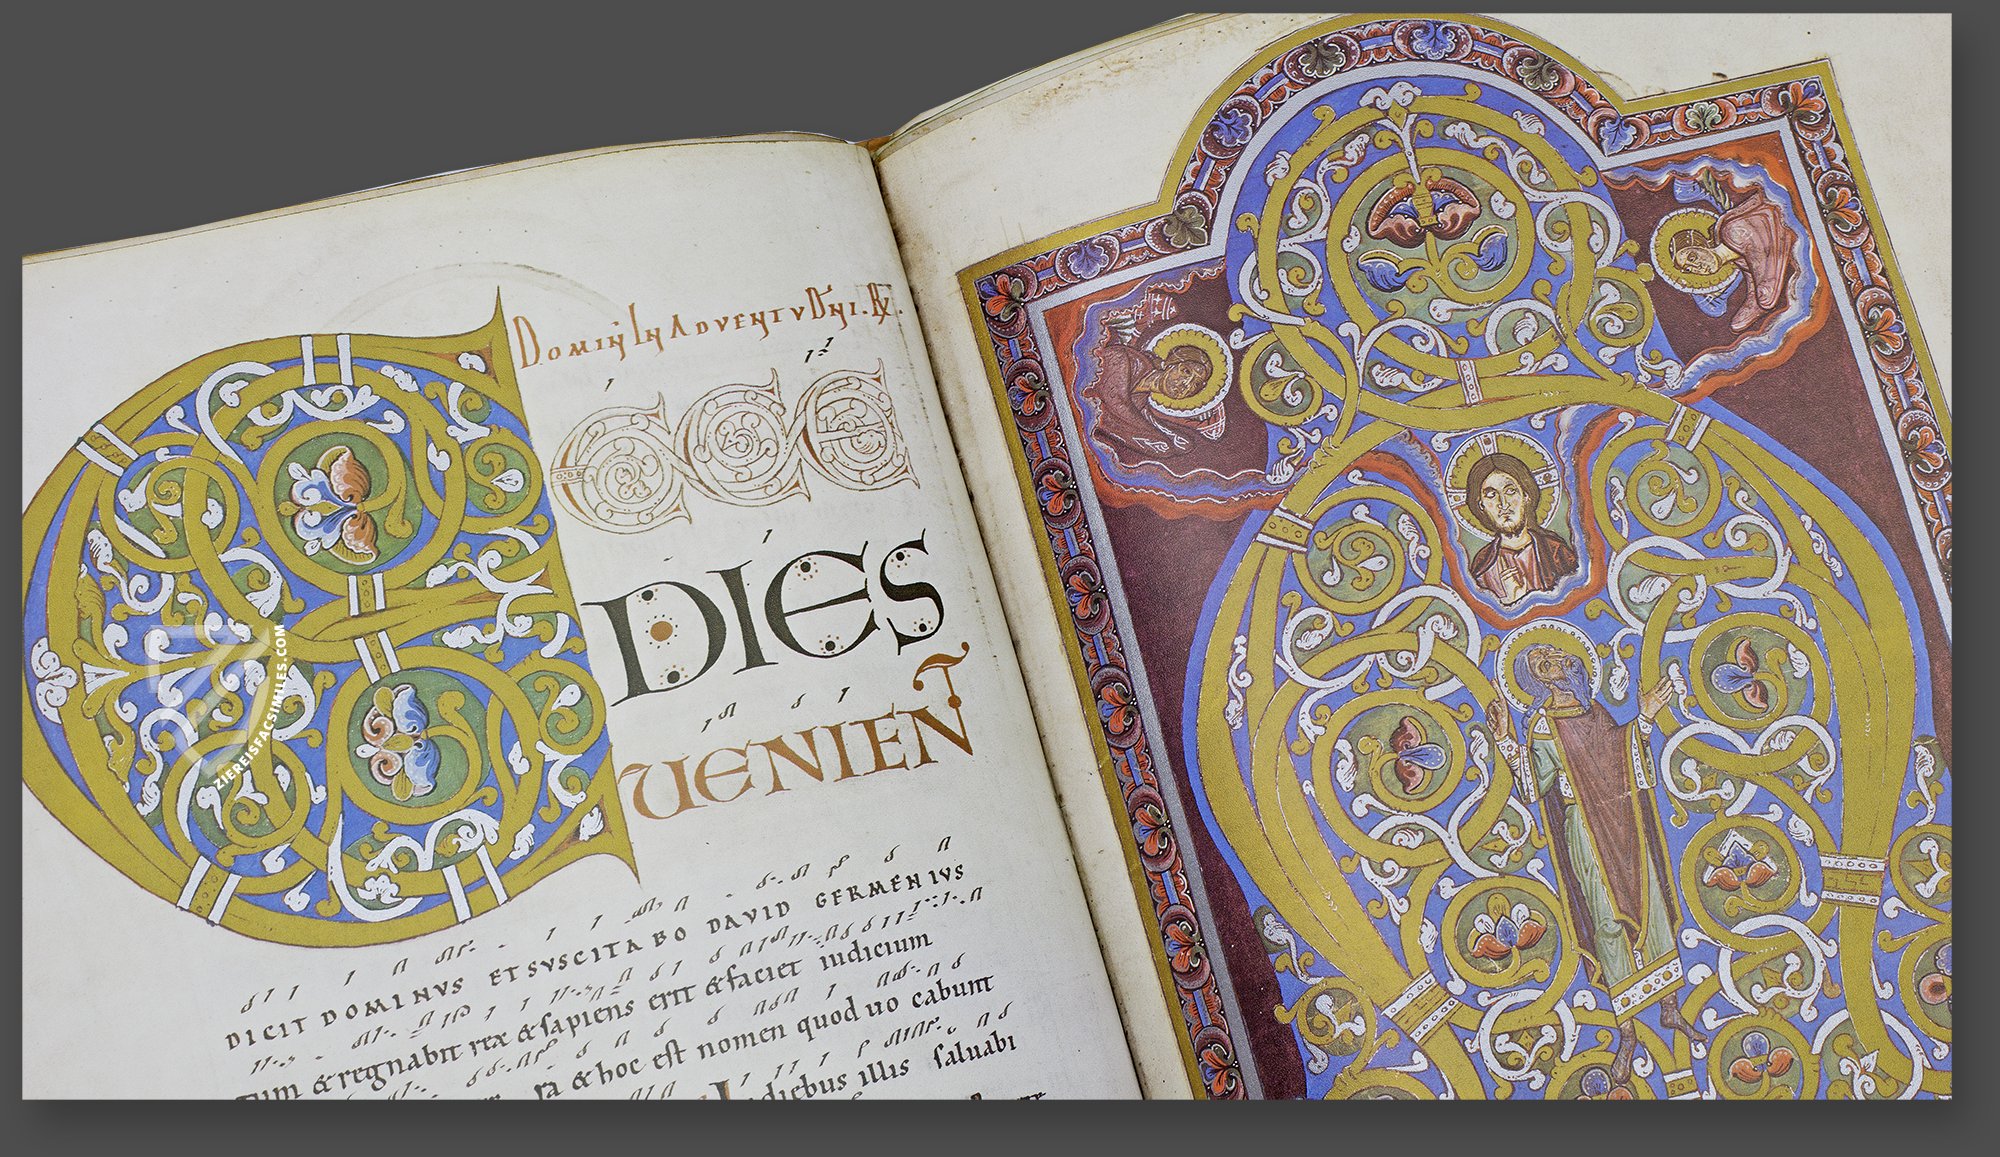 Domin̄ In Adventv Dn̄i. Rx.
Ecce
DIES
UENIENT
DICIT DOMINVS ET SVSCITABO DAVID GERMEN IVS
tum & regnabit rex & sapiens erit & faciet iudicium
sa & hoc est nomen quod uo cabunt
diebus illis saluabi
ZIEREISFACSIMILES.COM